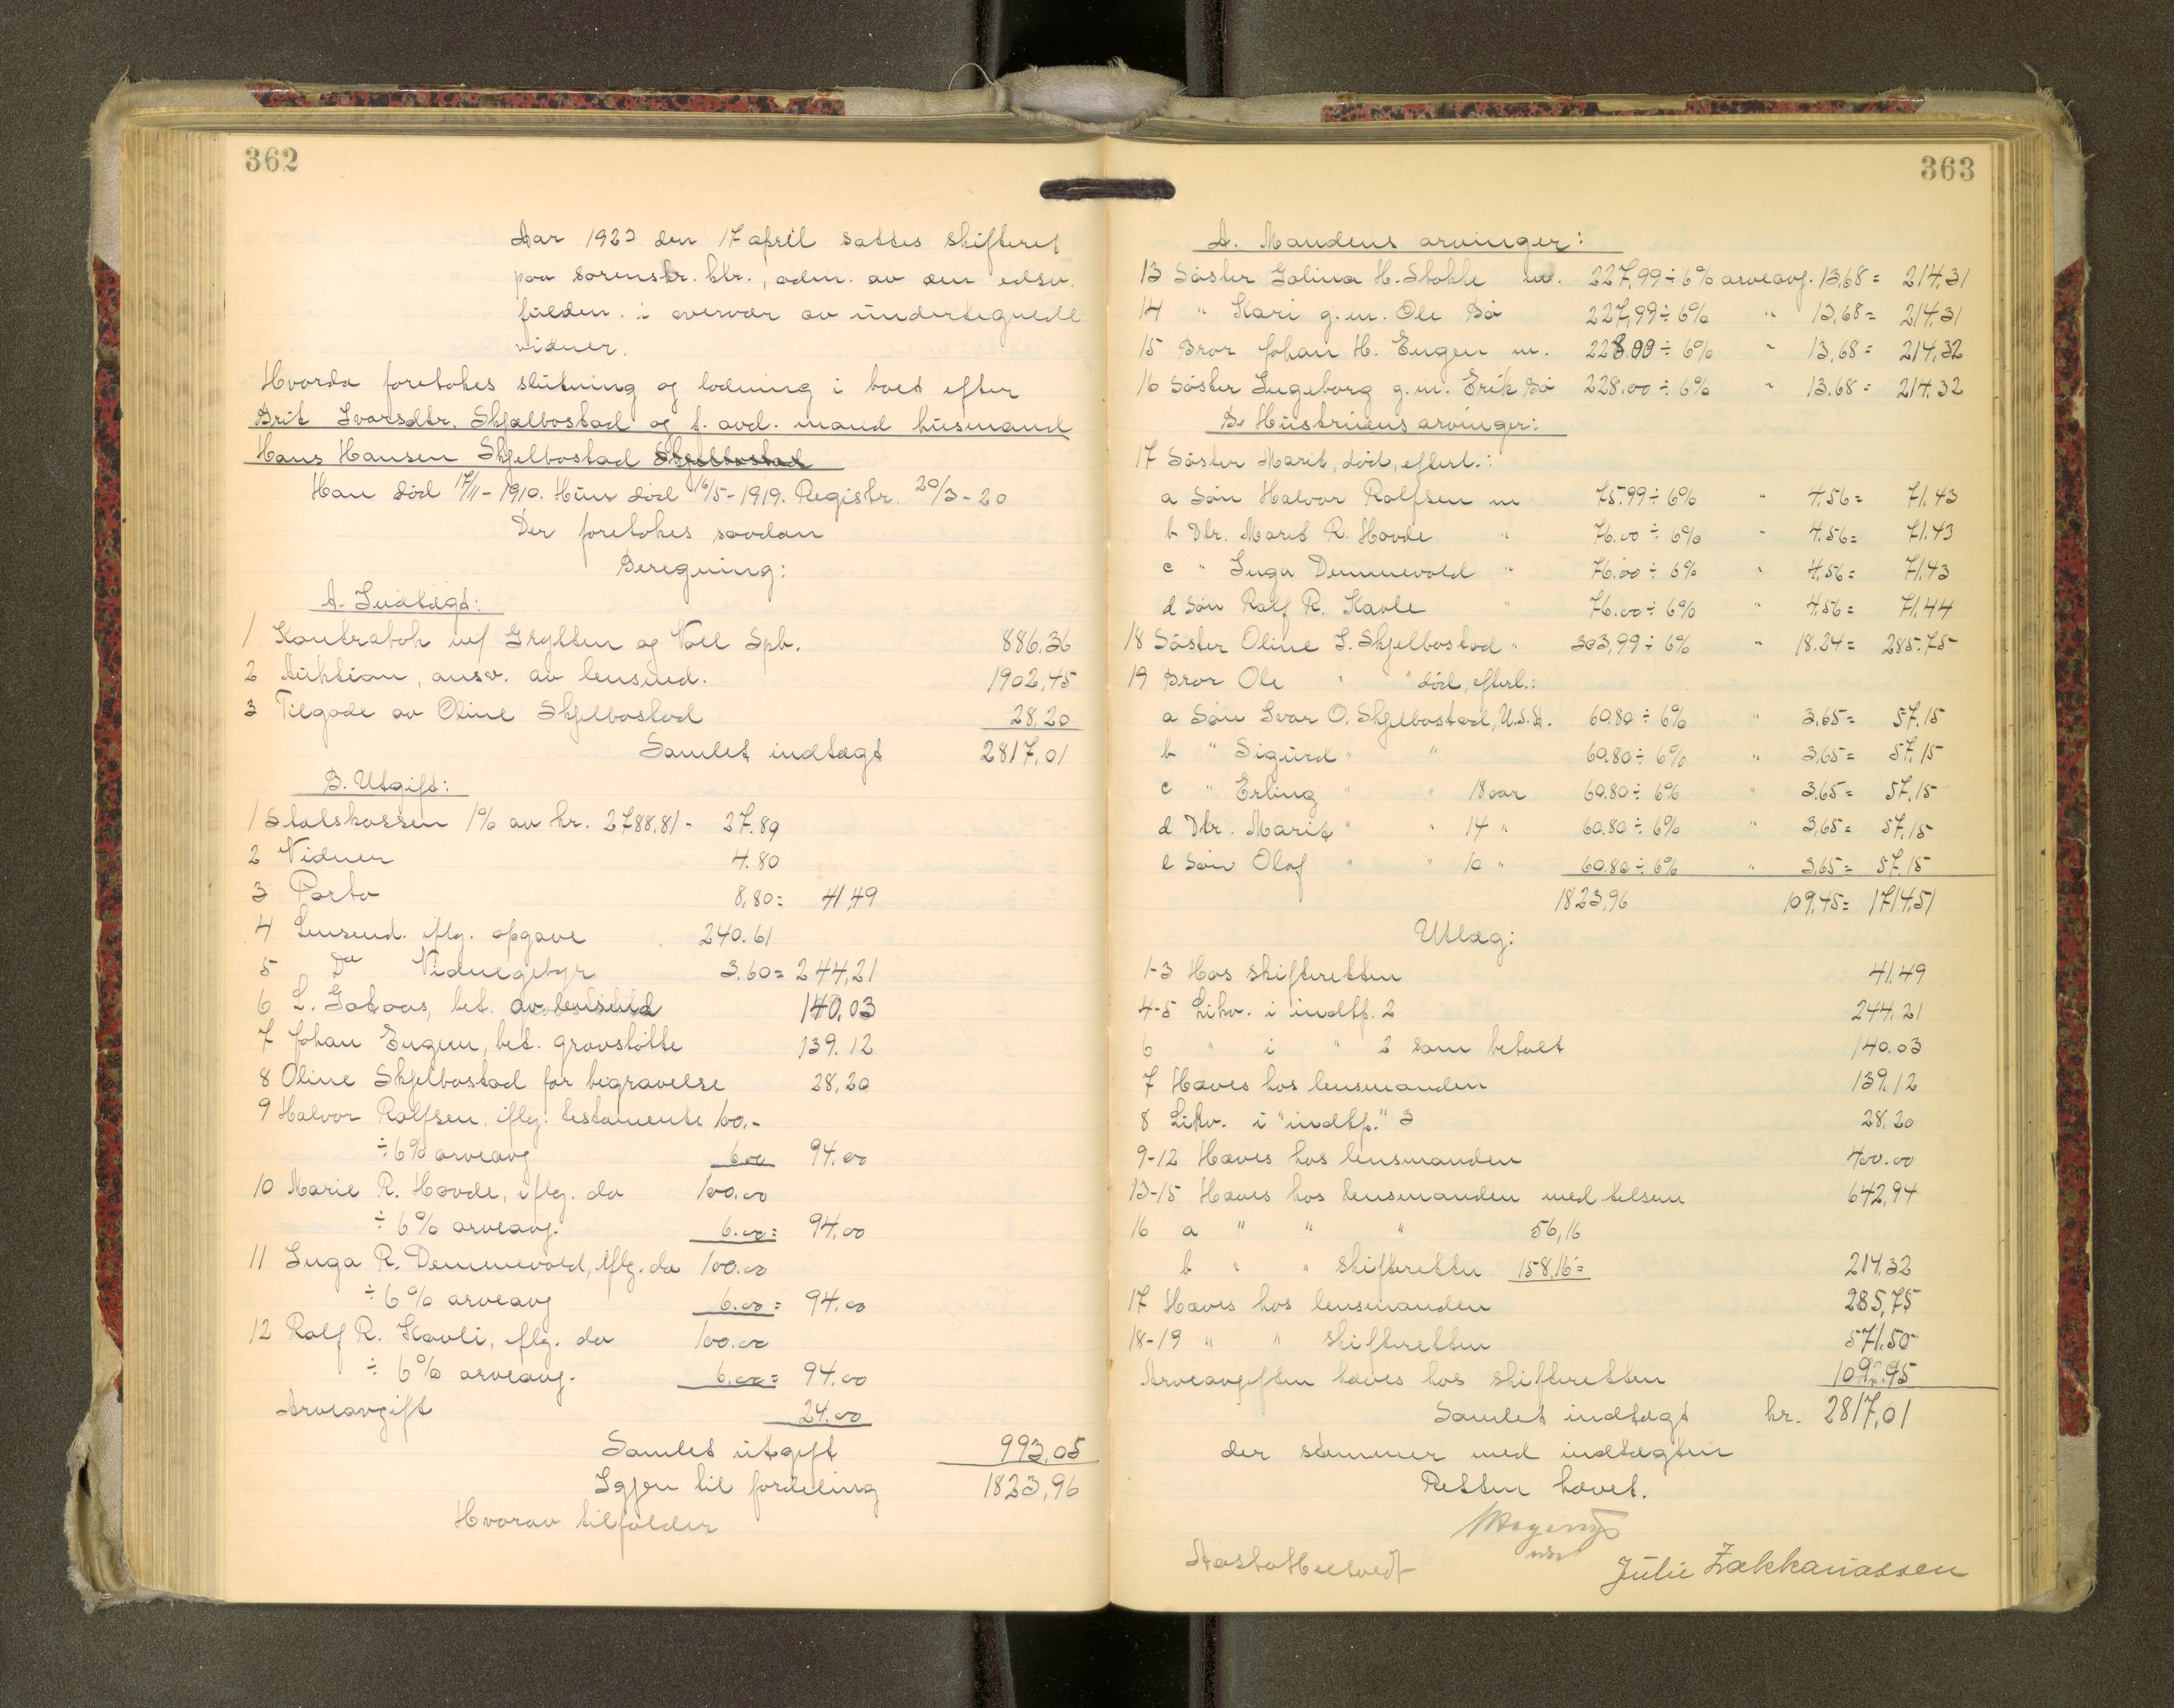 362
Aar 1923 den 17 april sattes skifteret
paa sorenskr. ktr., adm. av den edsv.
fuldm. i overvær av undertegnede
vidner.
Hvorda foretokes slutning og lodning i boet efter
Brit Ivarsdtr. Skjelbostad og f. avd. mand husmand
Hans Hansen Skjelbostad Skjelbostad
Han død 17/11-1910. Hun død 16/5-1919. Registr. 20/3-20
Der foretokes saadan
Beregning:
A. Indtægt:
1 Kontrabok m/ Grytten og Voll Spb. 886,36
2 Auktion, ansv. av lensmd. 1902,45
3 Tilgode av Oline Skjelbostad 28,20
Samlet indtægt 2817,01
B. Utgift:
1 Statskassen 1% av kr. 2788,81 - 27.89
2 Vidner 4.80
3 Porto 8,80 = 41,49
4 Lensmd. iflg. opgave 240.61
5 Do Vidnegebyr 3.60 = 244,21
6 L. Gataas, bet. av lensmd 140,03
7 Johan Engen, bet. gravstøtte 139.12
8 Oline Skjelbostad for begravelse 28,20
9 Halvor Rolfsen, iflg. testamente 100.-
÷ 6% arveavg 6.00 94.00
10 Marie R. Hovde, iflg. do 100.00
÷ 6% arveavg. 6.00 = 94.00
11 Inga R. Demmevold, iflg. do 100.00
÷ 6% arveavg 6.00 = 94.00
12 Rolf R. Kavli, iflg. do 100.00
÷ 6% arveavg. 6.00 = 94.00
Arveavgift 24.00
Samlet utgift 993,05
Igjen til fordeling 1823,96
Hvorav tilfalder
363
A. Mandens arvinger:
13 Søster Galina H. Stokke m. 227,99 ÷ 6% arveavg. 13,68 = 214,31
14 " Kari g.m. Ole Bø 227,99 ÷ 6% " 13,68 = 214,31
15 Bror Johan H. Engen m. 228.00 ÷ 6% " 13,68 = 214,32
16 Søster Ingeborg g.m. Erik Bø 228.00 ÷ 6% " 13.68 = 214.32
B. Hustruens arvinger:
17 Søster Marit, død, efterl.:
a Søn Halvor Rolfsen m 75.99 ÷ 6% " 4.56 = 71.43
b Dtr. Marit R. Hovde " 76.00 ÷ 6% " 4.56 = 71.43
c " Inga Demmevold " 76.00 ÷ 6% " 4,56 = 71.43
d Søn Rolf R. Kavle " 76.00 ÷ 6% " 4.56 = 71.44
18 Søster Oline I. Skjelbostad " 303,99 ÷ 6% " 18.24 = 285.75
19 Bror Ole " " død, efterl.:
a Søn Ivar O. Skjelbostad, U.S.A. 60.80 ÷ 6% " 3,65 = 57.15
b " Sigurd " " 60.80 ÷ 6% " 3,65 = 57.15
c " Erling " " 18 aar 60.80 ÷ 6% " 3.65 = 57.15
d Dtr. Marit " " 14 " 60.80 ÷ 6% " 3,65 = 57.15
e Søn Olaf " " 10 " 60.80 ÷ 6% " 3,65 = 57.15
1823,96 109,45 = 1714,51
Utlæg:
1-3 Hos skifteretten 41.49
4-5 Likv. i indtp. 2 244.21
6 " i " 2 som betalt 140.03
7 Hæves hos lensmanden 139.12
8 Likv. i "indtp." 3 28.20
9-12 Hæves hos lensmanden 400.00
13-15 Hæves hos lensmanden med tilsen 642,94
16 a " " " 56,16
b " " skifteretten 158,16 = 214,32
17 Hæves hos lensmanden 285,75
18-19 " " skifteretten 571.50
Arveavgiften hæves hos skifteretten 109.45
Samlet indtægt kr. 2817,01
der stemmer med indtægten
Retten hævet.
Julie Zakkariassen